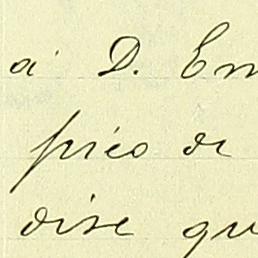 á D. Em
pico de
dise qu